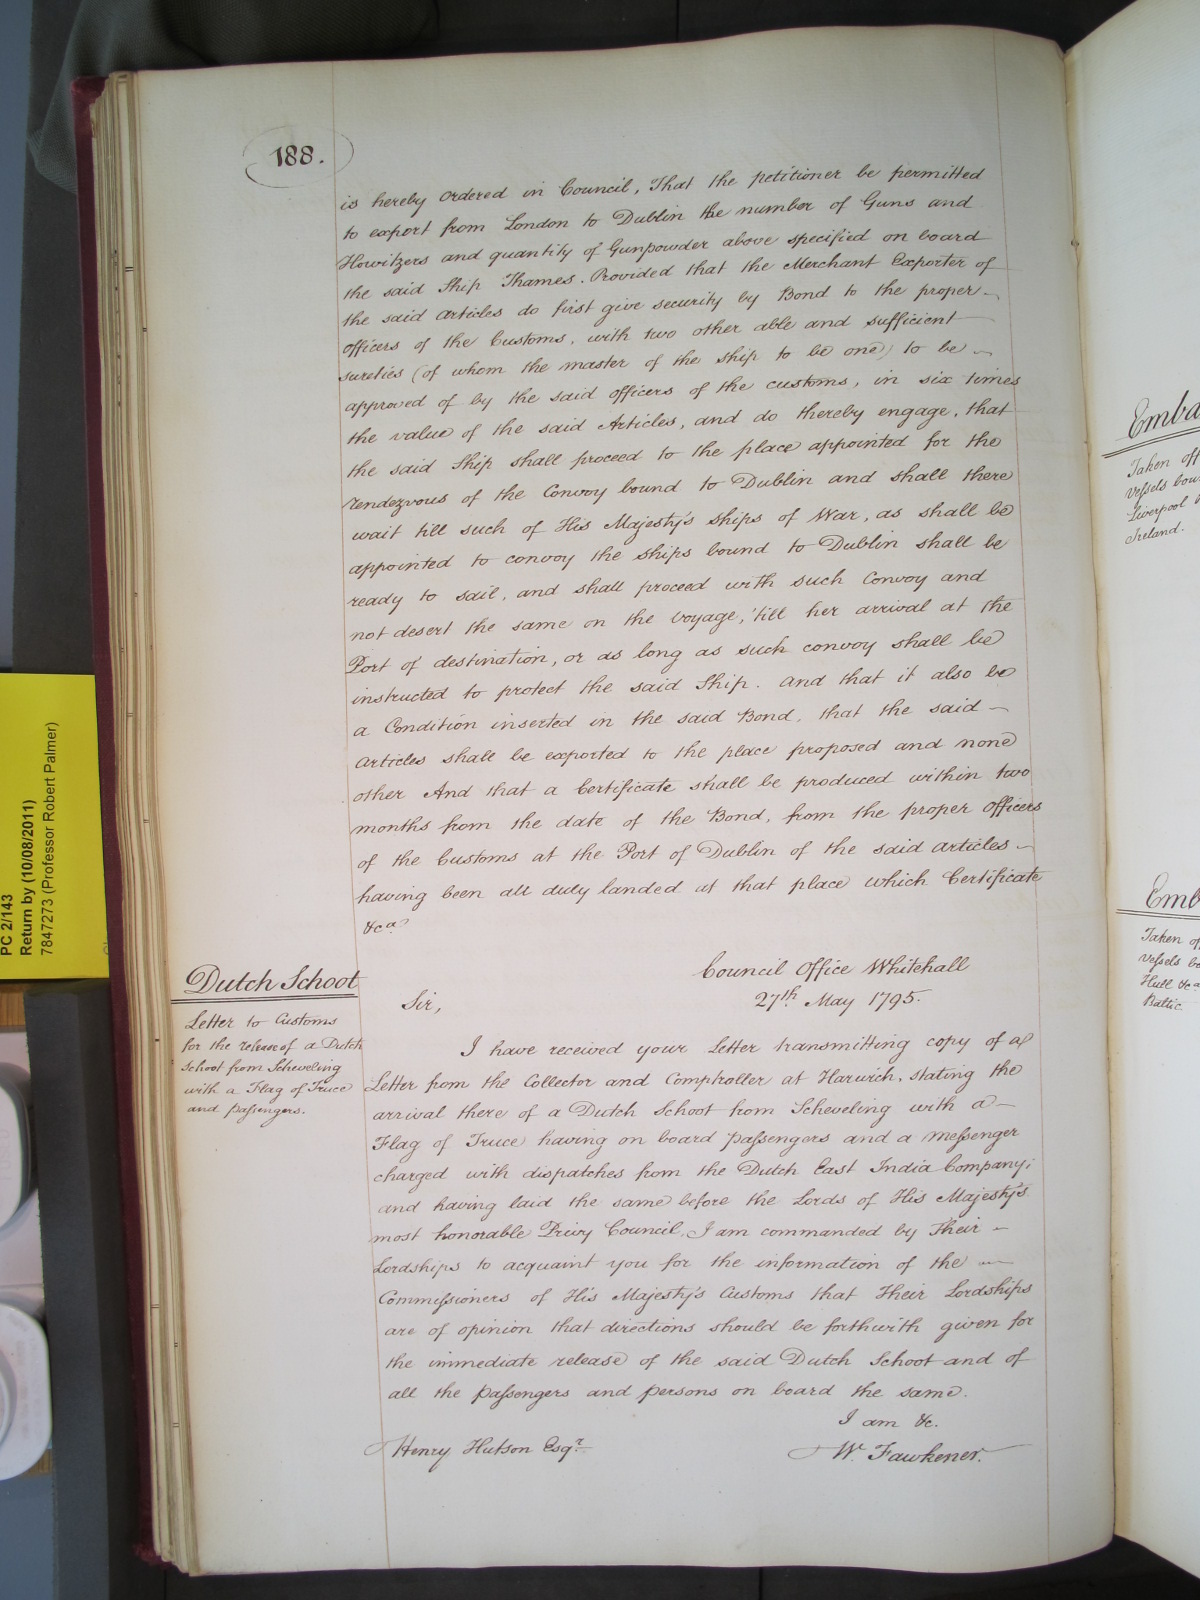 188.
is hereby ordered in Council, That the petitioner be permitted
to export from London to Dublin the number of Guns and
Howitzers and quantity of Gunpowder above specified on board
the said Ship Thames. Provided that the Merchant Exporter of
the said articles do first give security by Bond to the proper
officers of the Customs, with two other able and sufficient
sureties (of whom the master of the ship to be one) to be
approved of by the said officers of the customs, in six times
the value of the said Articles, and do thereby engage, that
the said Ship shall proceed to the place appointed for the
rendezvous of the Convoy bound to Dublin and shall there
wait till such of His Majesty's ships of War, as shall be
appointed to convoy the ships bound to Dublin shall be
ready to sail, and shall proceed with such Convoy and
not desert the same on the voyage, 'till her arrival at the
Port of destination, or as long as such convoy shall be
instructed to protect the said Ship. And that it also be
a Condition inserted in the said Bond, that the said
Articles shall be exported to the place proposed and none
other And that a Certificate shall be produced within two
months from the date of the Bond, from the proper officers
of the Customs at the Port of Dublin of the said articles
having been all duly landed at that place which Certificate
&ca
Dutch Schoot
Letter to Customs
for the release of a Dutch
Schoot from Scheveling
with a Flag of Truce
and passengers.
Council Office Whitehall
27th May 1795.
Sir,
I have received your Letter transmitting copy of a
Letter from the Collector and Comptroller at Harwich, stating the
arrival there of a Dutch Schoot from Scheveling with a
Flag of Truce having on board passengers and a messenger
charged with dispatches from the Dutch East India Company;
and having laid the same before the Lords of His Majesty's
most honorable Privy Council, I am commanded by Their
Lordships to acquaint you for the information of the
Commissioners of His Majesty's Customs that Their Lordships
are of opinion that directions should be forthwith given for
the immediate release of the said Dutch Schoot and of
all the passengers and persons on board the same.
I am &c.
Henry Hutson Esqr.
W. Fawkener.
PC 2/143
Return by (10/08/2011)
7847273 (Professor Robert Palmer)
Taken off
vessels
Liverpool
Ireland.
Taken
vessels
Hull &ca
Baltic.